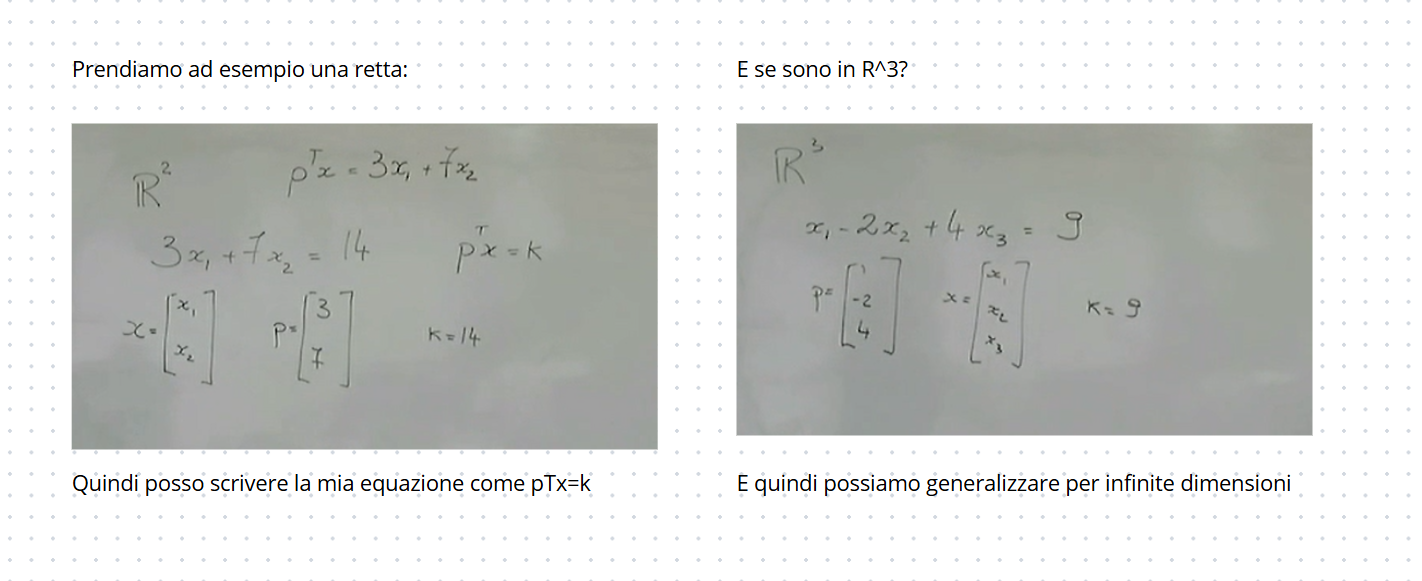 Prendiamo ad esempio una retta:
ℝ² pᵀx = 3x₁ + 7x₂
3x₁ + 7x₂ = 14 pᵀx = k
x = [x₁ x₂] p = [3 7] k = 14
Quindi posso scrivere la mia equazione come pTx=k
E se sono in R^3?
ℝ³
x₁ - 2x₂ + 4x₃ = 9
p = [1 -2 4] x = [x₁ x₂ x₃] k = 9
E quindi possiamo generalizzare per infinite dimensioni